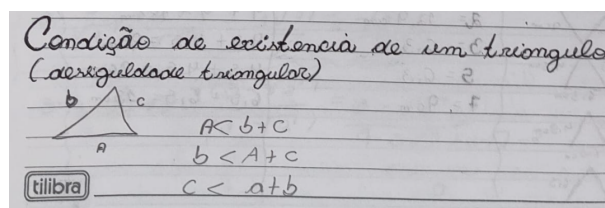 Condição de existencia de um triongulo
(desiguldade triongular)
b c
A
A < b + c
b < A + c
tilibra c < a + b